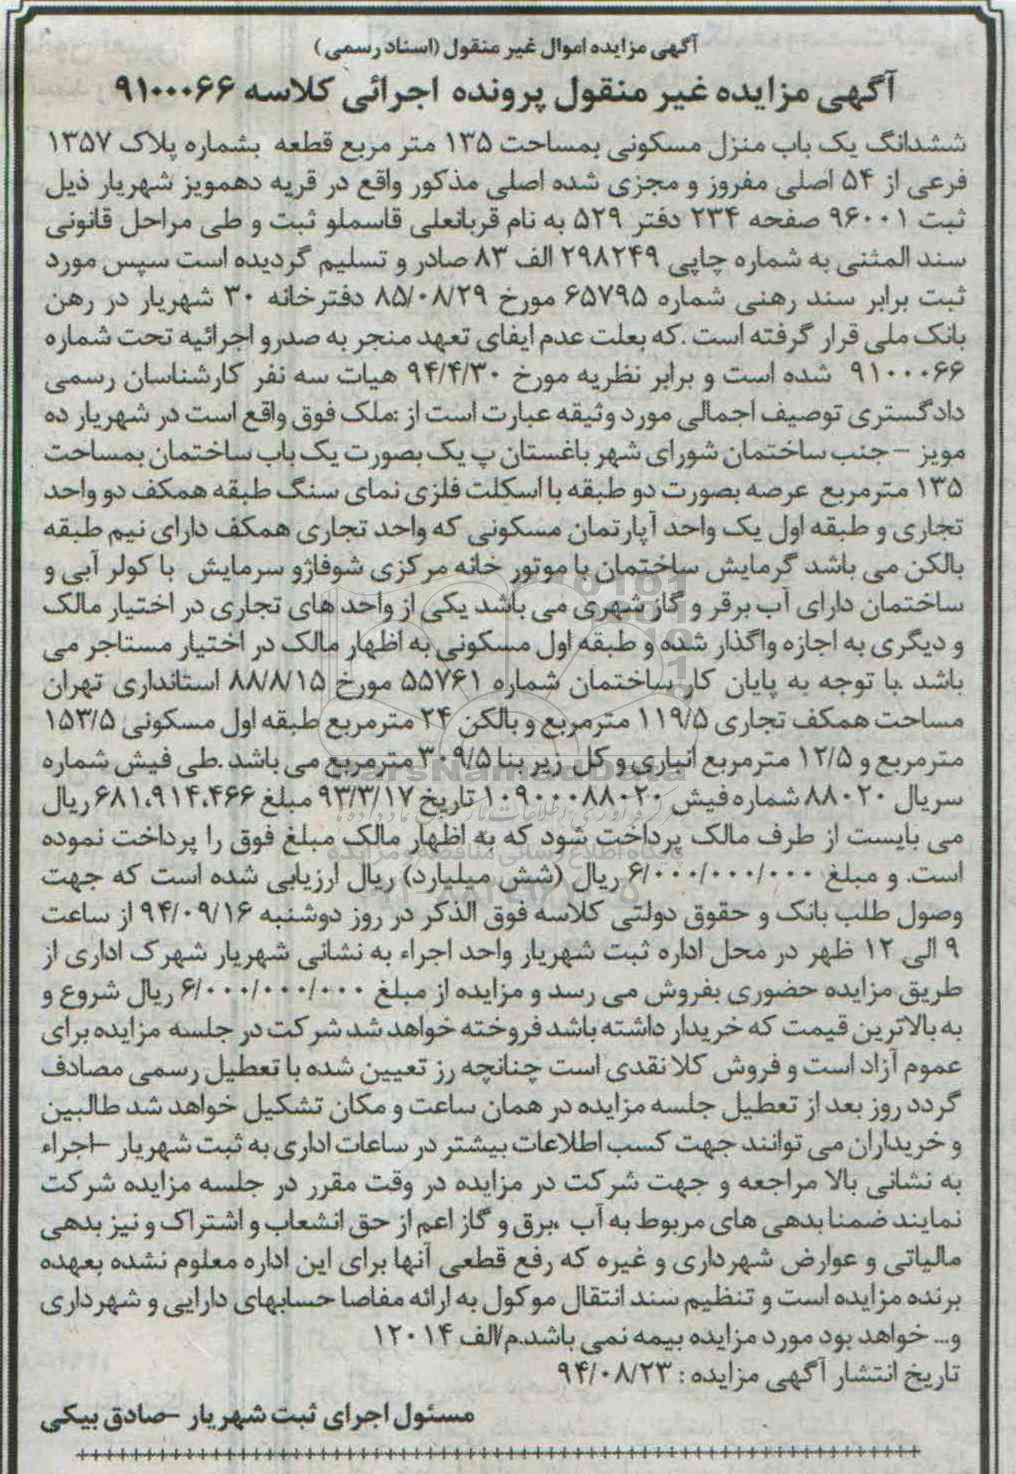 آگهی مزایده اموال غیر منقول (اسناد رسمی)
آگهی مزایده غیر منقول پرونده اجرائی کلاسه ۹۱۰۰۰۶۶
ششدانگ یک باب منزل مسکونی بمساحت ۱۳۵ متر مربع قطعه بشماره پلاک ۱۳۵۷
فرعی از ۵۴ اصلی مفروز و مجزی شده اصلی مذکور واقع در قریه دهمویز شهریار ذیل
ثبت ۹۶۰۰۱ صفحه ۲۳۴ دفتر ۵۲۹ به نام قربانعلی قاسملو ثبت و طی مراحل قانونی
سند المثنی به شماره چاپی ۲۹۸۲۴۹ الف ۸۳ صادر و تسلیم گردیده است سپس مورد
ثبت برابر سند رهنی شماره ۶۵۷۹۵ مورخ ۸۵/۰۸/۲۹ دفترخانه ۳۰ شهریار در رهن
بانک ملی قرار گرفته است .که بعلت عدم ایفای تعهد منجر به صدرو اجرائیه تحت شماره
۹۱۰۰۰۶۶ شده است و برابر نظریه مورخ ۹۴/۴/۳۰ هیات سه نفر کارشناسان رسمی
دادگستری توصیف اجمالی مورد وثیقه عبارت است از :ملک فوق واقع است در شهریار ده
مویز - جنب ساختمان شورای شهر باغستان پ یک بصورت یک باب ساختمان بمساحت
۱۳۵ مترمربع عرصه بصورت دو طبقه با اسکلت فلزی نمای سنگ طبقه همکف دو واحد
تجاری و طبقه اول یک واحد آپارتمان مسکونی که واحد تجاری همکف دارای نیم طبقه
بالکن می باشد گرمایش ساختمان با موتور خانه مرکزی شوفاژو سرمایش با کولر آبی و
ساختمان دارای آب برقر و گاز شهری می باشد یکی از واحد های تجاری در اختیار مالک
و دیگری به اجازه واگذار شده و طبقه اول مسکونی به اظهار مالک در اختیار مستاجر می
باشد .با توجه به پایان کار ساختمان شماره ۵۵۷۶۱ مورخ ۸۸/۸/۱۵ استانداری تهران
مساحت همکف تجاری ۱۱۹/۵ مترمربع و بالکن ۲۴ مترمربع طبقه اول مسکونی ۱۵۳/۵
مترمربع و ۱۲/۵ مترمربع انباری و کل زیر بنا ۳۰۹/۵ مترمربع می باشد .طی فیش شماره
سریال ۸۸۰۲۰ شماره فیش ۱۰۹۰۰۰۸۸۰۲۰ تاریخ ۹۳/۳/۱۷ مبلغ ۶۸۱،۹۱۴،۴۶۶ ریال
می بایست از طرف مالک پرداخت شود که به اظهار مالک مبلغ فوق را پرداخت نموده
است. و مبلغ ۶/۰۰۰/۰۰۰/۰۰۰ ریال (شش میلیارد) ریال ارزیابی شده است که جهت
وصول طلب بانک و حقوق دولتی کلاسه فوق الذکر در روز دوشنبه ۹۴/۰۹/۱۶ از ساعت
۹ الی ۱۲ ظهر در محل اداره ثبت شهریار واحد اجراء به نشانی شهریار شهرک اداری از
طریق مزایده حضوری بفروش می رسد و مزایده از مبلغ ۶/۰۰۰/۰۰۰/۰۰۰ ریال شروع و
به بالاترین قیمت که خریدار داشته باشد فروخته خواهد شد شرکت در جلسه مزایده برای
عموم آزاد است و فروش کلا نقدی است چنانچه رز تعیین شده با تعطیل رسمی مصادف
گردد روز بعد از تعطیل جلسه مزایده در همان ساعت و مکان تشکیل خواهد شد طالبین
و خریداران می توانند جهت کسب اطلاعات بیشتر در ساعات اداری به ثبت شهریار -اجراء
به نشانی بالا مراجعه و جهت شرکت در مزایده در وقت مقرر در جلسه مزایده شرکت
نمایند ضمنا بدهی های مربوط به آب ،برق و گاز اعم از حق انشعاب و اشتراک و نیز بدهی
مالیاتی و عوارض شهرداری و غیره که رفع قطعی آنها برای این اداره معلوم نشده بعهده
برنده مزایده است و تنظیم سند انتقال موکول به ارائه مفاصا حسابهای دارایی و شهرداری
و... خواهد بود مورد مزایده بیمه نمی باشد.م/الف ۱۲۰۱۴
تاریخ انتشار آگهی مزایده : ۹۴/۰۸/۲۳
مسئول اجرای ثبت شهریار -صادق بیکی